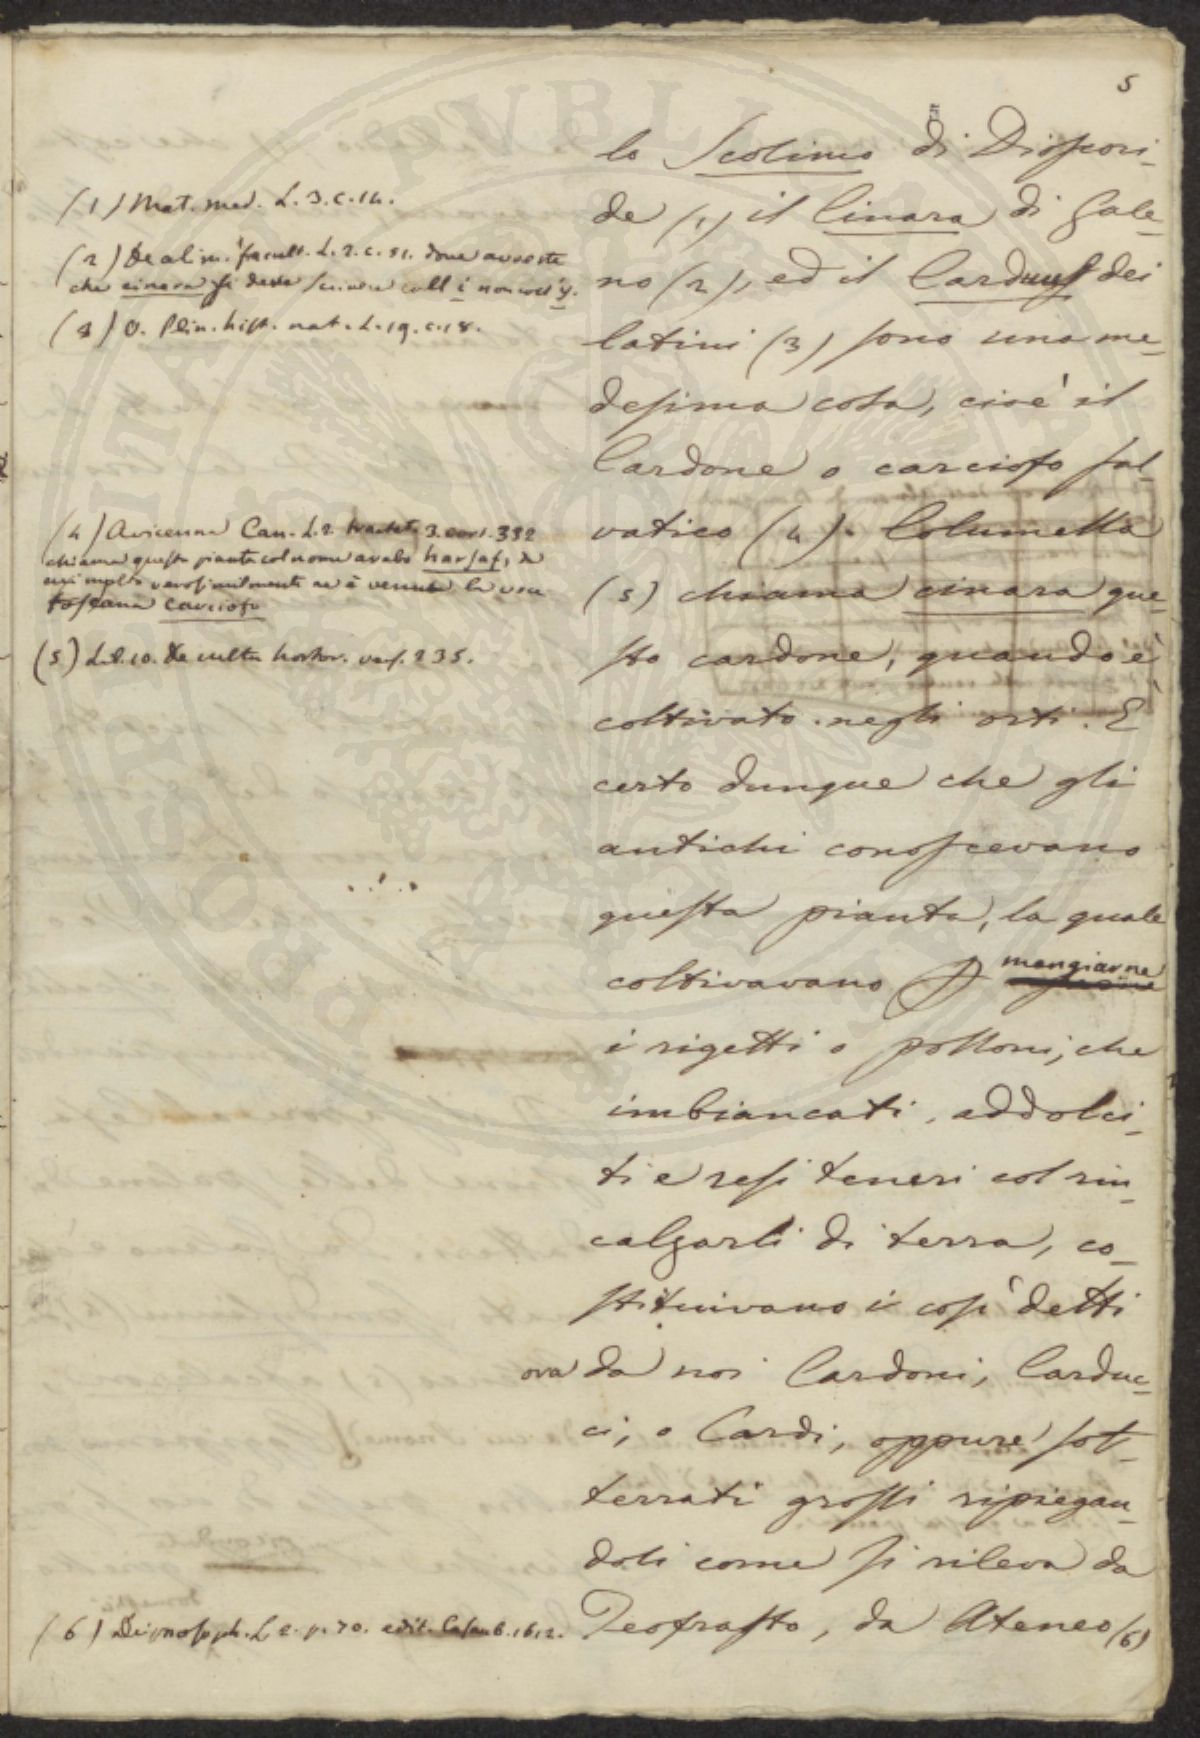 5
lo Scolimo di Dioscori-
de (1) il Cinara di Gale-
no (2), ed il Carduus dei
latini (3) sono una me-
desima cosa, cioè il
Cardone o carciofo sal-
vatico (4). Columella
(5) chiama cinara que-
sto cardone, quando è
coltivato negli orti. È
certo dunque che gli
antichi conoscevano
questa pianta, la quale
coltivavano p mangiarne
i rigetti o polloni, che
imbiancati, addolci-
ti e resi teneri col rin-
calzarli di terra, co-
stituivano i così detti
ora da noi Cardoni, Carduc-
ci, o Cardi, oppure sot-
terrati grossi ripiegan-
doli come si rileva da
Teofrasto, da Ateneo (6)
(1) Mat. med. L. 3. c. 14.
(2) De alim. facult. L. 2. c. 51. dove avverte
che cinara si deve scrivere coll i non coll y.
(3) V. Plin. hist. nat. L. 19. c. 18.
(4) Avicenna Can. L. 2. tractat. 3. 332
chiama questa pianta col nome arabo harsaf, da
cui molto verosimilmente ne è venuta la voce
toscana carciofo
(5) Lib. 10. De cultu hortor. vers. 235.
(6) Deipnosoph. L 2. p. 70. edit. Casaub. 1612.